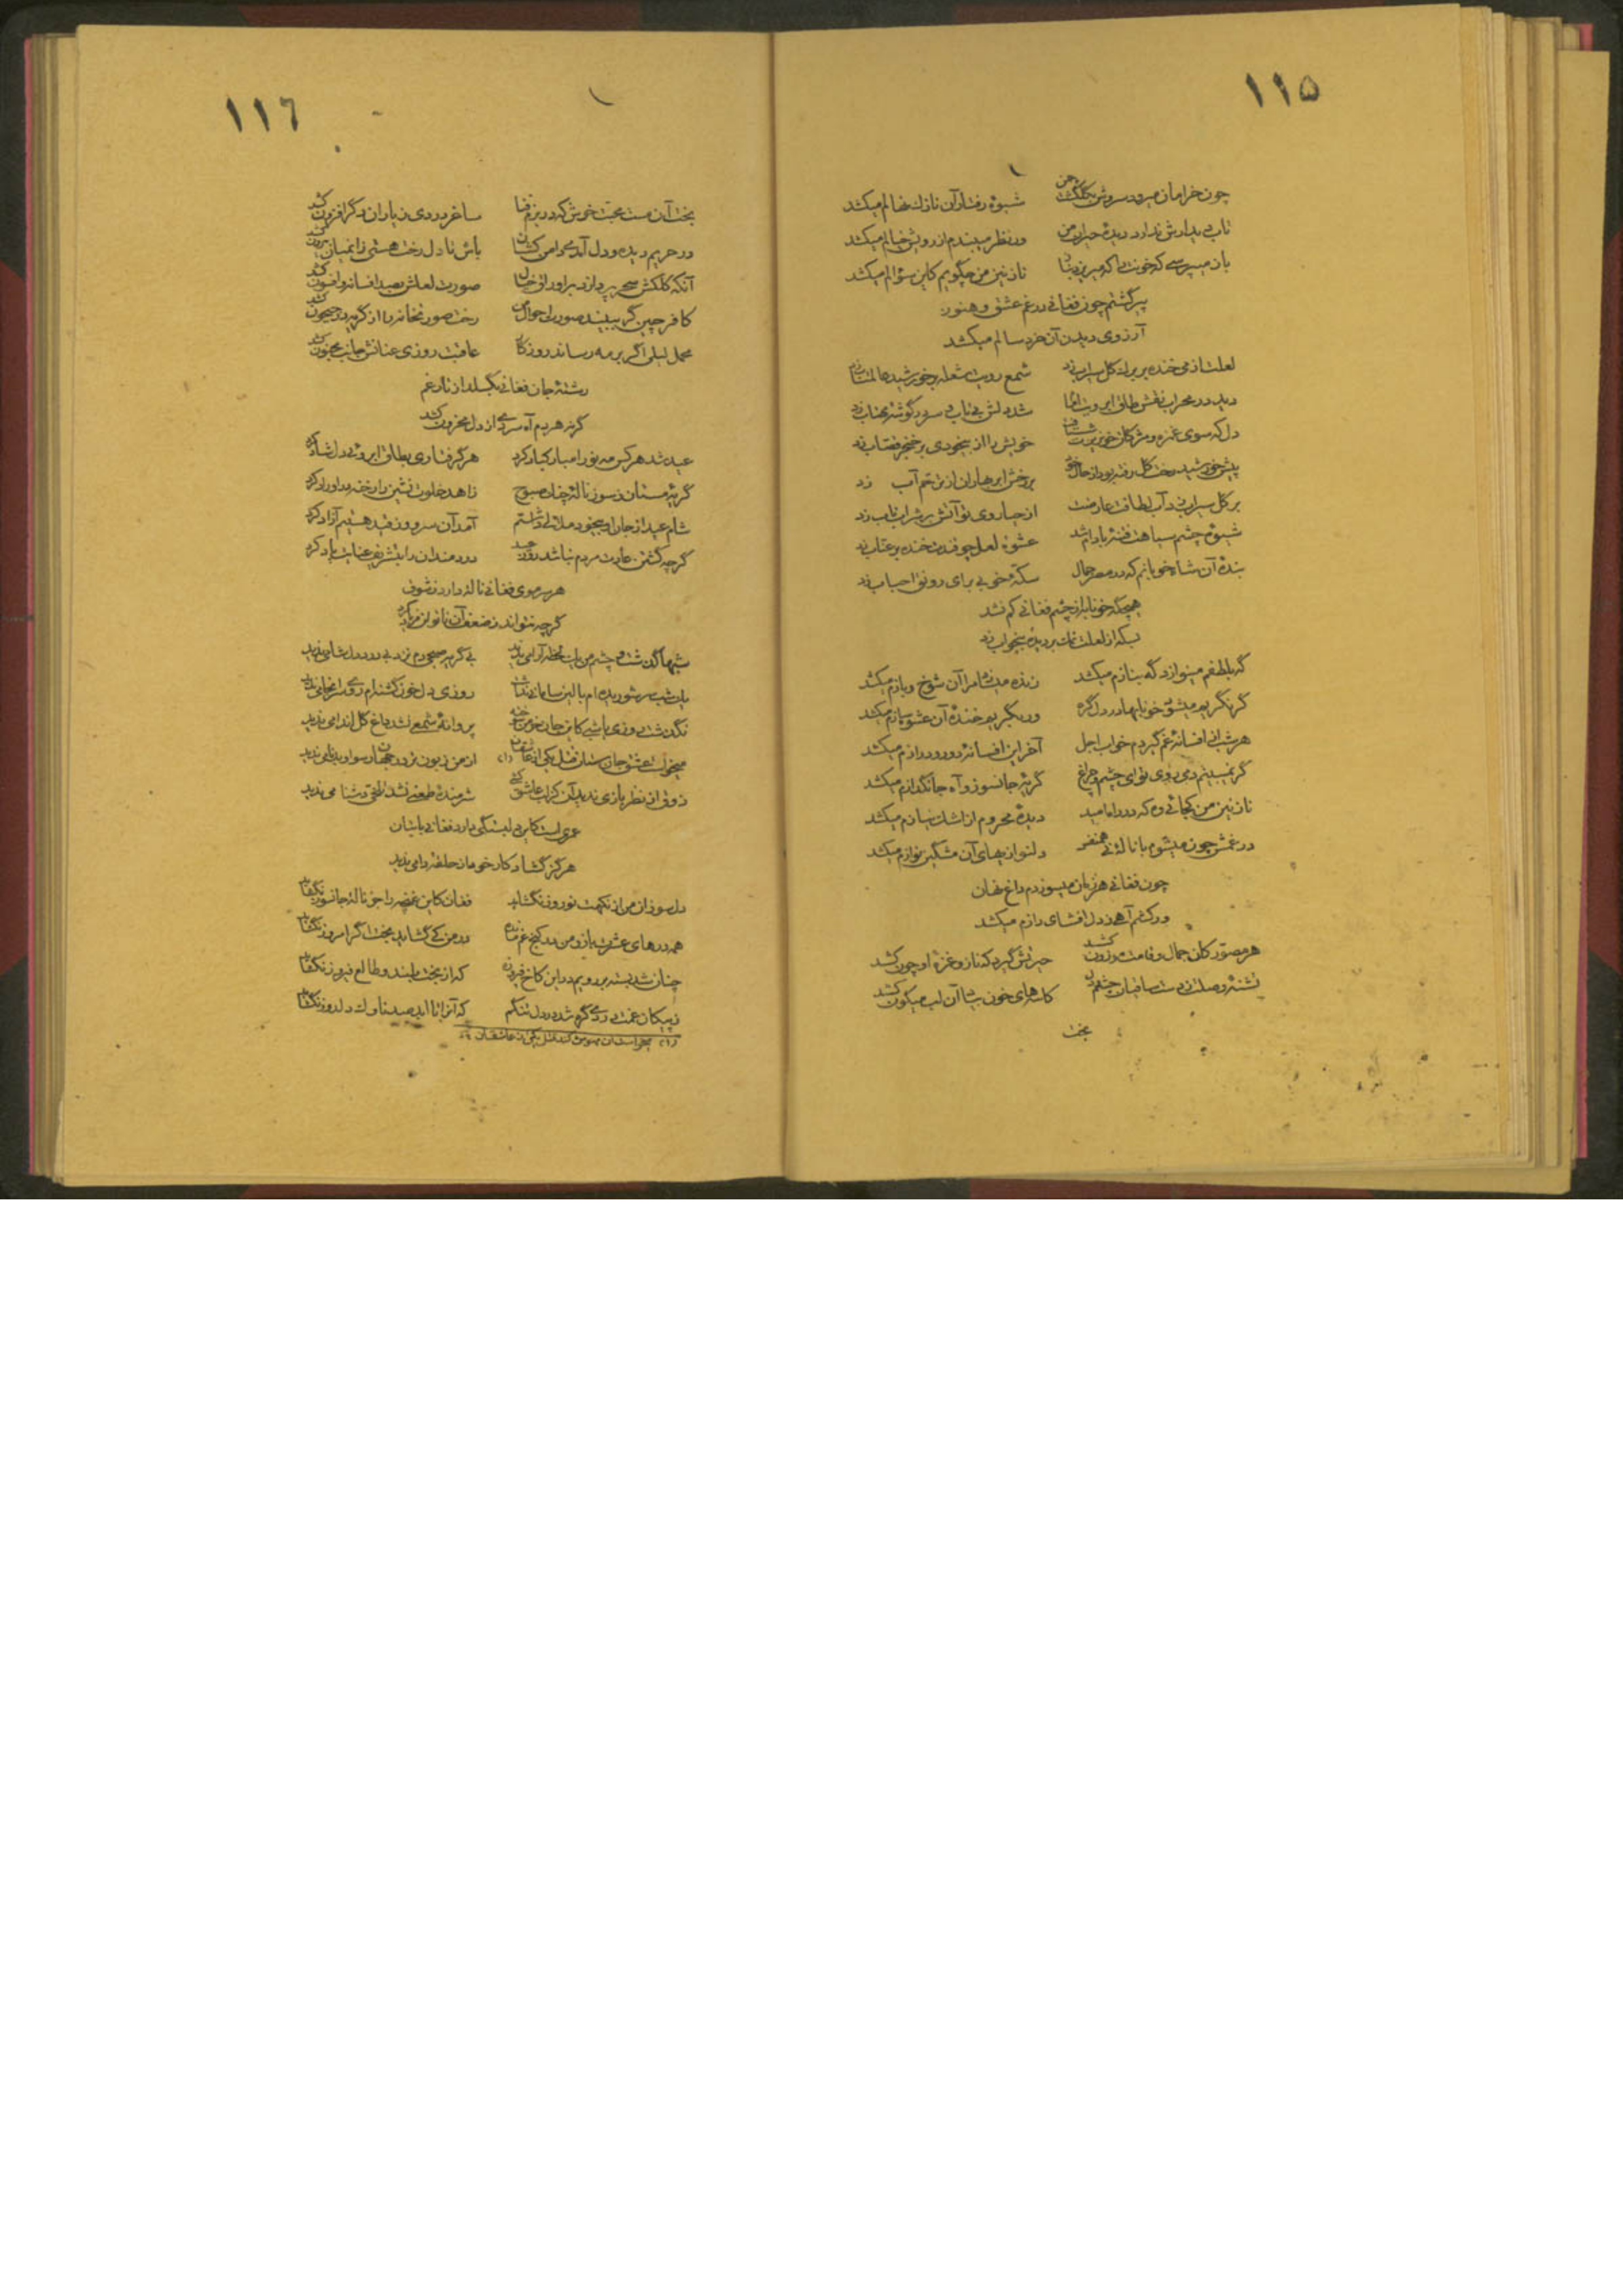 ۱۱۵
چون خرامان میرود سروش بگلگشت چمن شیوهٔ رفتار آن نازك نهالم میکشد
تاب دیدارش ندارد دیدهٔ حیران من ور نظر میبندم از رویش خیالم میکشد
باز میپرسی که خونت را که میریزد نازنین من چگویم کاین سؤالم میکشد
پیر گشتم چون فغانی در غم عشق و هنوز
آرزوی دیدن آن خردسالم میکشد
لعلت از می خنده بر برك گل سیراب زد شمع رویت شعله بر خورشید عالمتاب زد
دید در محراب نقش طاق ابرویت شد دلش بی تاب و سر در گوشهٔ محراب زد
دل که سوی غمزه و مژکان خونریزت شتافت خویش را از بیخودی بر خنجر قصاب زد
پیش خورشید رخت گل رفته بود از حال خود بر رخش ابر بهاران از ترحم آب زد
بر گل سیراب زد آب لطافت عارضت از حیا روی تو آتش در شراب ناب زد
شیوهٔ چشم سیاهت فتنهٔ بادام شد عشوهٔ لعل چو قندت خنده بر عناب زد
بندهٔ آن شاه خوبانم که در مصر جمال سکهٔ خوبی برای رونق احباب زد
هیچگه خونابه از چشم فغانی کم نشد
بسکه از لعلت نمك بر دیدهٔ بیخواب زد
گه بلطفم مینوازد گه بنازم میکشد زنده میسازد مرا آن شوخ و بازم میکشد
گر نگریم میشود خونابها در دل گره ور بگریم خندهٔ آن عشوه سازم میکشد
هر شب از افسانهٔ غم گیردم خواب اجل آخر این افسانهٔ دور و درازم میکشد
گر نمیبینم دمی روی تو ای چشم و چراغ گریهٔ جانسوز و آه جانگدازم میکشد
نازنین من کجائی وه که دور امید دیدهٔ محروم از اشك نیازم میکشد
در غمش چون میشوم با نالهٔ نی همنفس دلنوازیهای آن مشگین نوازم میکشد
چون فغانی هر زمان میسوزدم داغ نهان
ور کشم آهی ز دل افشای رازم میکشد
هر مصور کان جمال و قامت موزون کشد حیرتش گیرد که ناز و غمزهٔ او چون کشد
تشنهٔ وصلت ز دست ساقیان کاسه های خون بیاد آن لب میگون کشد
بخت
۱۱٦
بخت آن مست محبت خوش که در بزم فنا ساغر دردی ز یاران دگر افزون کشد
در حریم دیده و دل آمدی دامن کشان باش تا دل رخت هستی زانمیان بیرون کشد
آنکه کلکش سحر پردازد بر اوراق خیال صورت لعلش بصد افسانه و افسون کشد
کافر چین گر ببیند صورت احوال من رخت صورتخانه را از گریه در جیحون کشد
محمل لیلی اگر بر مه رساند روزگار عاقبت روزی عنانش جانب مجنون کشد
رشتهٔ جان فغانی بگسلد از تار غم
گرنه هر دم آه سردی از دل محزون کشد
عید شد هر کس مه نو را مبارکباد کرد هر گرفتاری بطاق ابروئی دل شاد کرد
گریهٔ مستان ز سوز نالهٔ چنك صبوح زاهد خلوت نشین را رخنه در اوراد کرد
شام عید از جان بیخود ملالی داشتم آمد آن سرو و ز قید هستیم آزاد کرد
گرچه کشتن عادت مردم نباشد روز عید دردمندان را بتشریف عنایت یاد کرد
هر سر موی فغانی نالهٔ دارد ز شوق
گرچه نتواند ز ضعف آن ناتوان فریاد کرد
شبها گذشت و چشم من یك لحظه آرامی ندید بی گریه صبحی دم نزد بی درد دل شامی ندید
روزی دل خون گشته ام روی سرانجامی ندید
نگذشت روزی یا شبی کاین جان خرمن سوخته پروانهٔ شمعی نشد داغ گل اندامی ندید
میخواست عشق جان ستان قتل یکی از عاشقان (۱) از من زبون تر در جهان رسوا و بدنامی ندید
ذوقی از نظر بازی ندید آن کز عاشق کشی شرمندهٔ طعنی نشد دشنامی ندید
عمریست کاین دلبستگی دارد فغانی با بتان
هرگز گشاد کار خود زان حلقهٔ دامی ندید
دل سوزان من از نکهت نوروز نگشاید فغان کاین غنچه را جز نالهٔ جانسوز نگشاید
همه درهای عشرت باز و من در کنج غم مانده در من کی گشاید بخت اگر امروز نگشاید
چنان شد بسته بر رویم در این کاخ فیروزه که از بخت بلند و طالع فیروز نگشاید
ز پیکان غمت دردی گره شد در دل تنگم که آنرا تا ابد صد ناوك دلدوز نگشاید